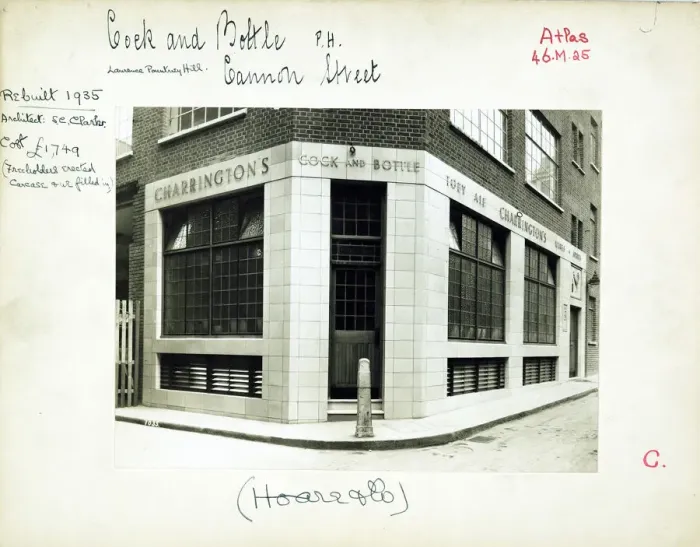 Cock and Bottle P.H.
Laurence Pountney Hill.
Cannon Street
Atlas
46.M.25
C
Rebuilt 1935
Architect: S.C. Clark.
Cost £1,749
(Freeholders erected
Carcase & we filled in)
CHARRINGTON'S
COCK AND BOTTLE
TOBY ALE
CHARRINGTON'S
1935
C.
(Hoare & Co)